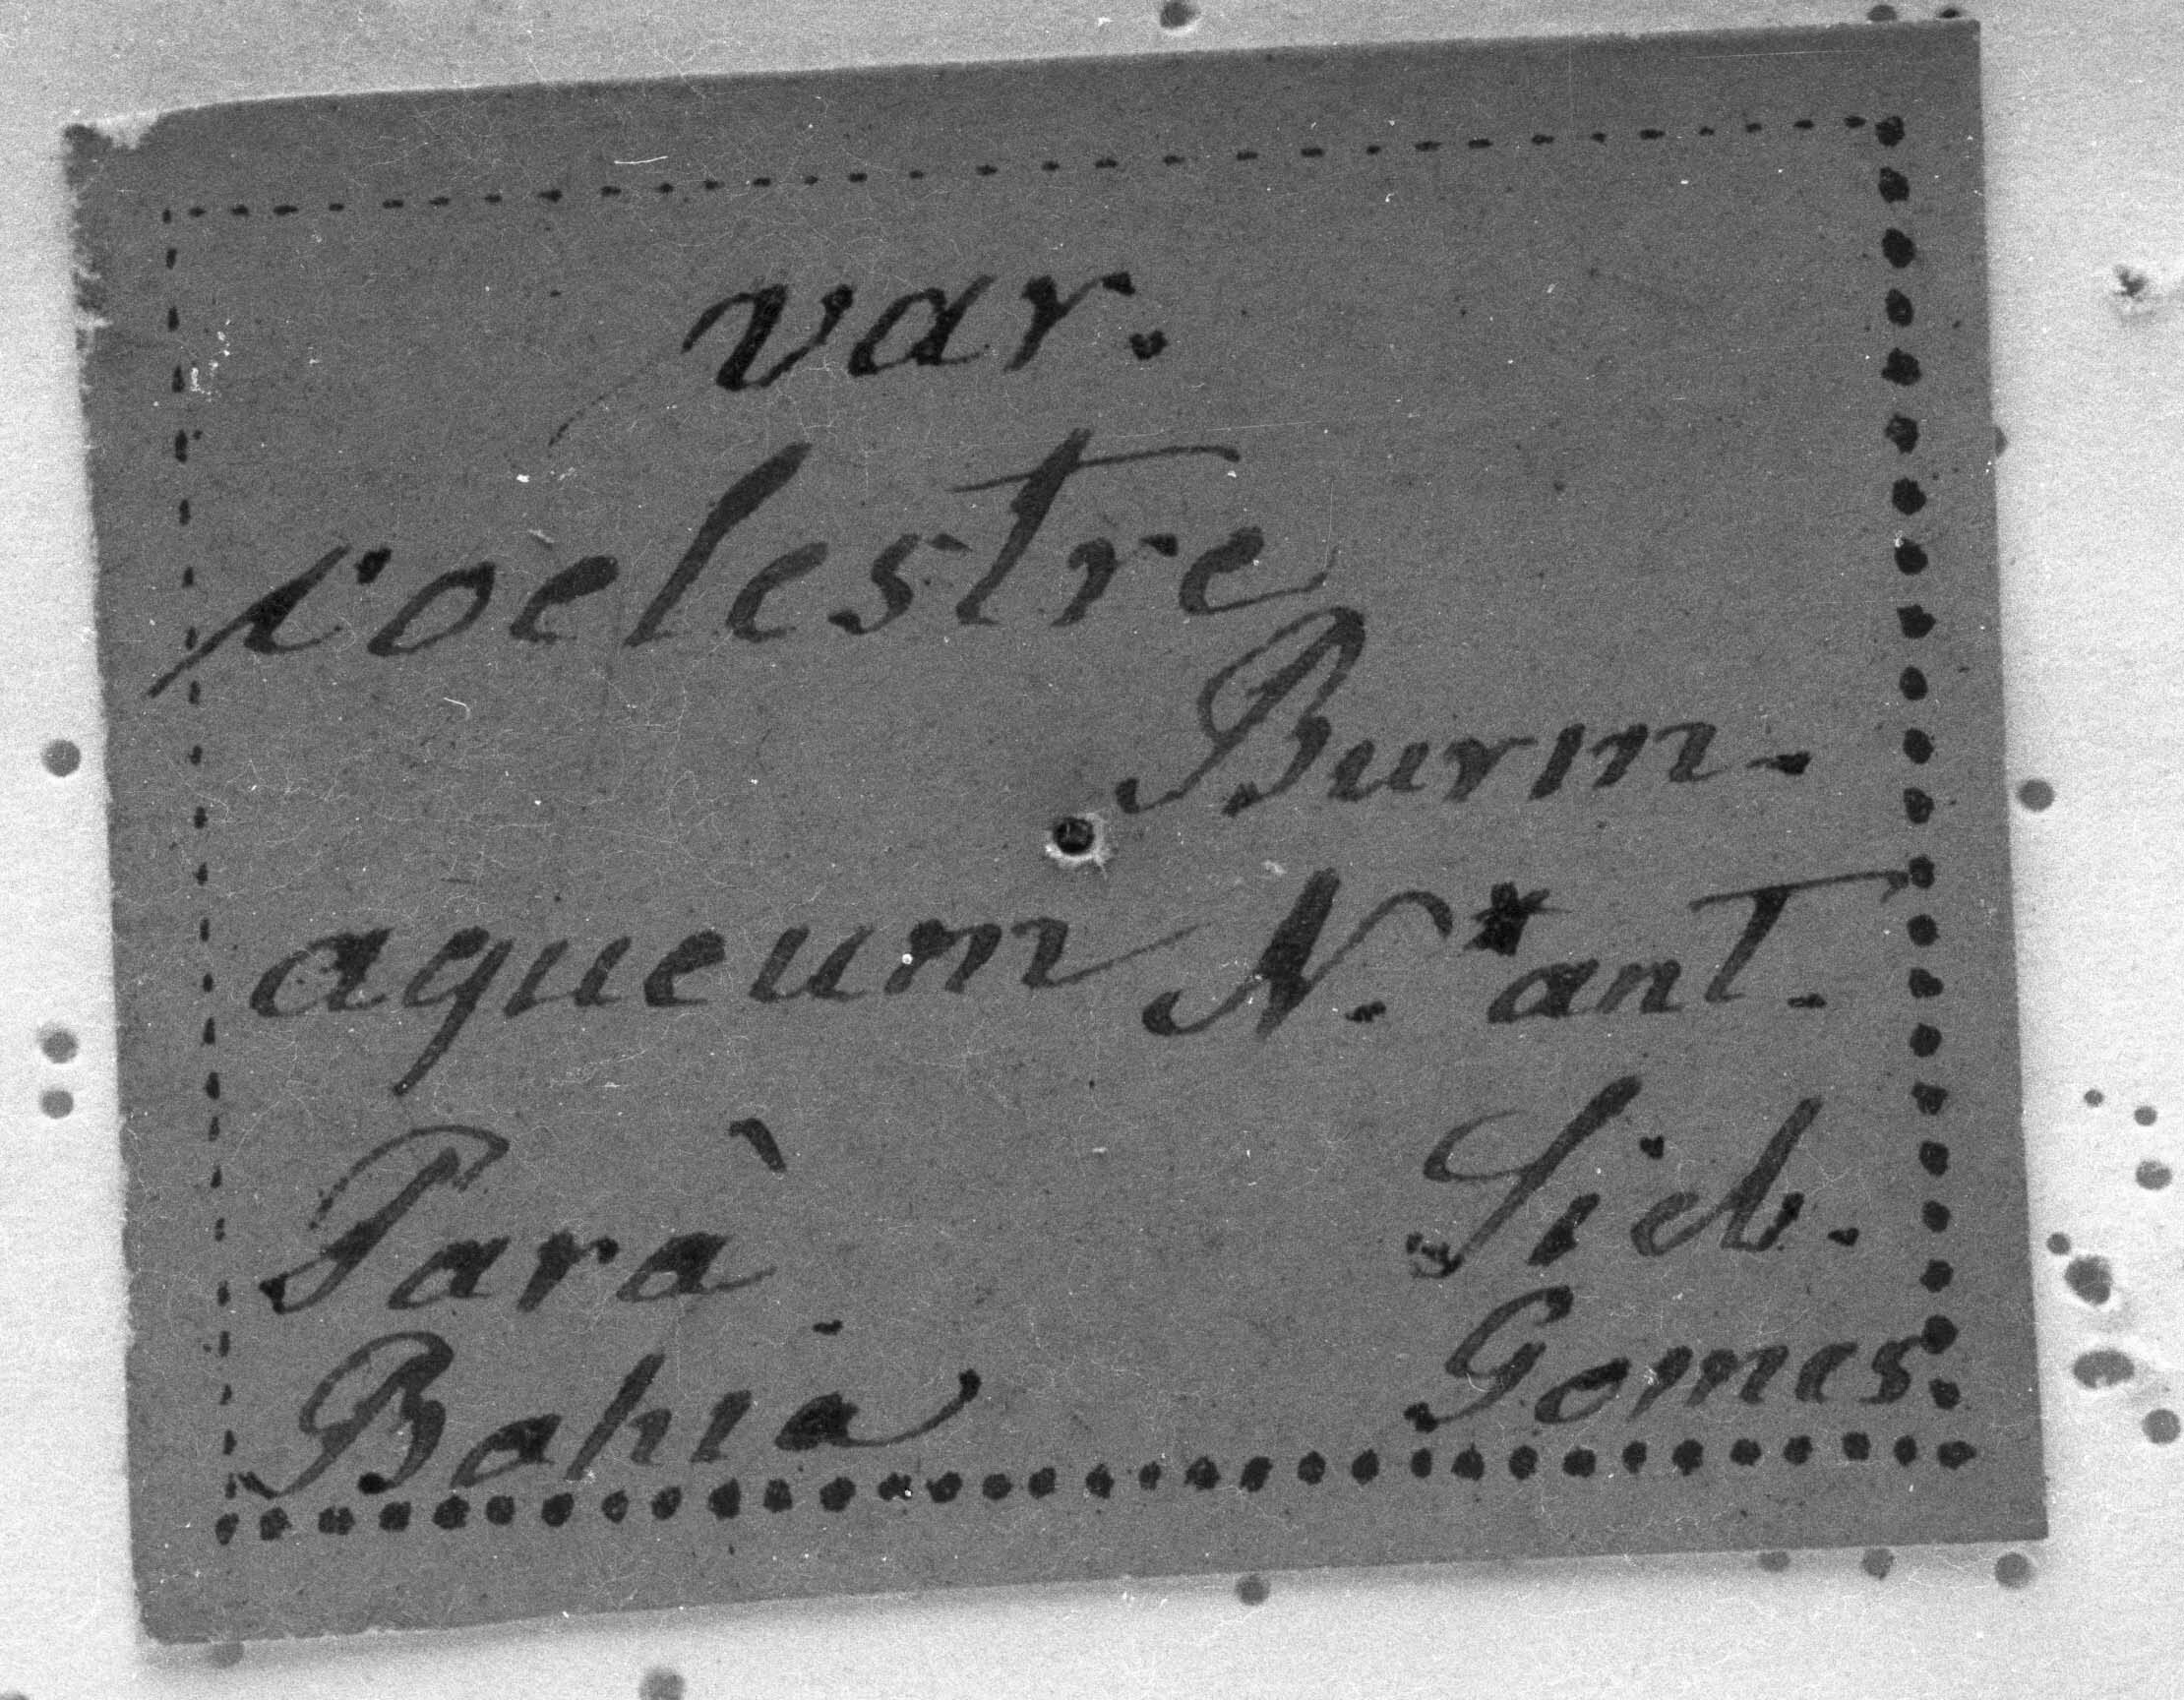 var.
coelestre
Burm.
aqueum N.* ant.
Parà Sieb.
Bahia Gomes.